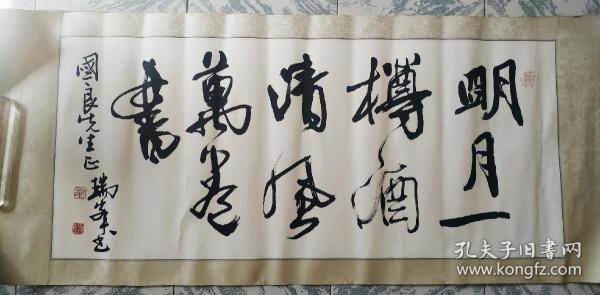 明月一
樽酒
清風
萬卷
書
國良先生正
瑞峯书
孔夫子旧书网
www.kongfz.com